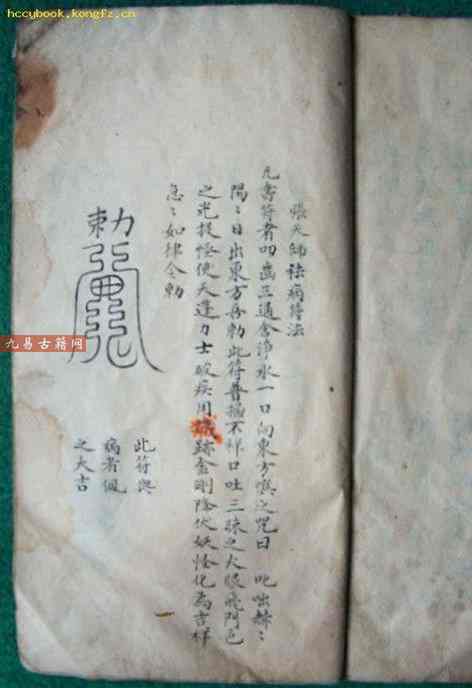 hccybook.kongfz.cn
張天師祛病符法
凡書符者叩齒三通含淨水一口向東方噀之咒曰 叱咄赫〻
陽〻日出東方吾勅此符普掃不祥口吐三昧之火眼飛門邑
之光捉怪使天蓬力士破疾用跡金剛降伏妖怪化為吉祥
急〻如律令勅
勅
此符與
病者佩
之大吉
九易古籍网